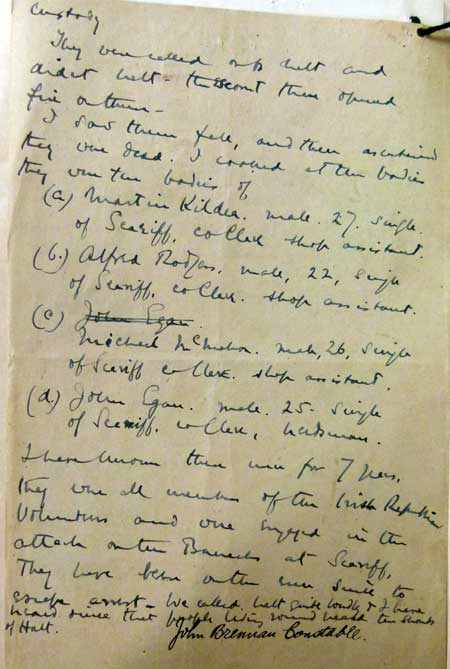 custody
They were called on to halt and
didnt halt - the escort then opened
fire on them -
I saw them fall, and then ascertained
they were dead. I looked at the bodies
they were the bodies of
(a) Martin Kildea. male. 27. single.
of Scariff. co Clare shop assistant.
(b.) Alfred Rodgers. male, 22, single
of Scariff. co Clare. shop assistant.
(c) John Egan.
Michael McMahon. male, 26, single
of Scariff co Clare. shop assistant.
(d.) John Egan. male. 25 - single
of Scariff. co Clare,
I have known these men for 7 years,
They were all members of the Irish Republican
Volunteers and were engaged in the
attack on the Barracks at Scariff,
They have been on the run since to
escape arrest - We called halt quite loudly & I have
heard since that people living round heard the shouts
of Halt.
John Brennan Constable.